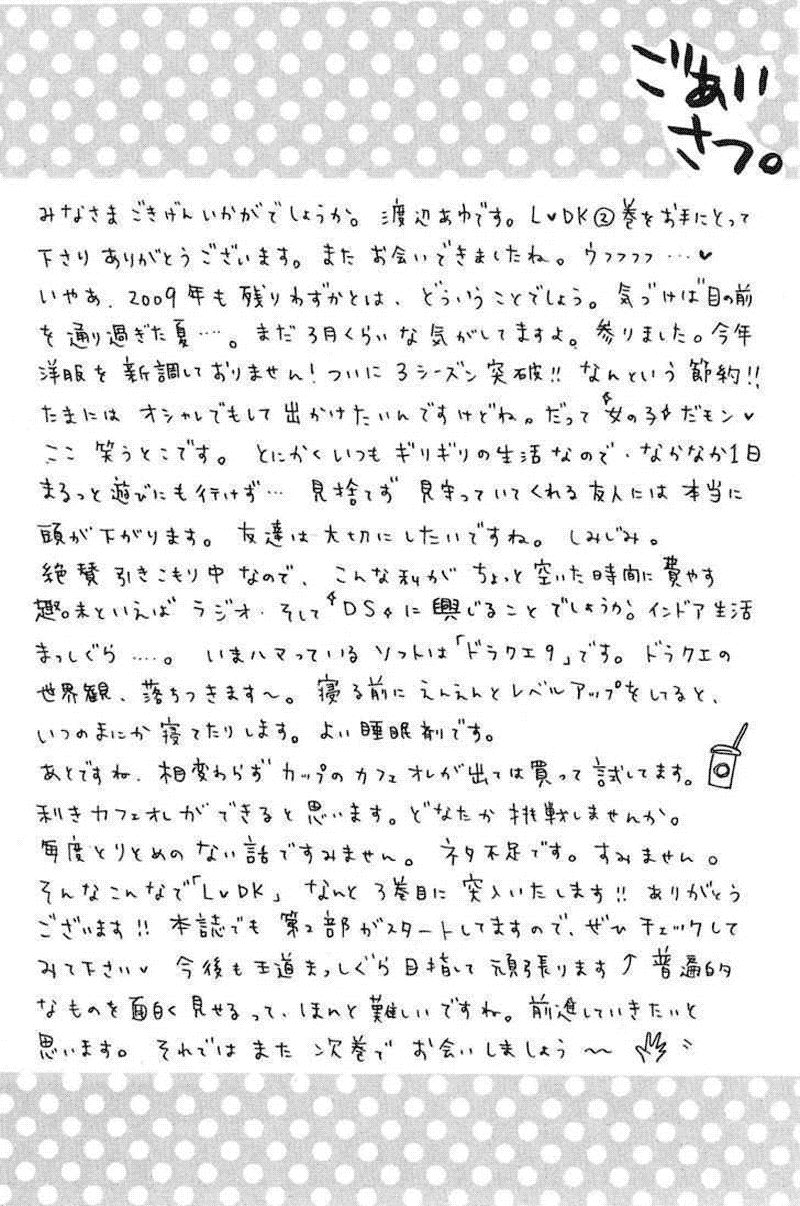 ごあい
さつ。
みなさま ごきげんいかがでしょうか。渡辺あゆです。L♥DK②巻をお手にとって
下さり ありがとうございます。また お会いできましたね。ウフフフフ…♥
いやあ、2009年も残りわずかとは、どういうことでしょう。気づけば目の前
を通り過ぎた夏…。まだ3月くらいな気がしてますよ。参りました。今年
洋服を 新調しておりません!ついに3シーズン突破!! なんという節約!!
たまには オシャレでもして 出かけたいんですけどね。だって〝女の子〟だモン♥
ここ 笑うとこです。とにかくいつも ギリギリの生活なので、なかなか1日
まるっと遊びにも行けず… 見捨てず 見守っていてくれる友人には 本当に
頭が下がります。友達は大切にしたいですね。しみじみ。
絶賛 引きこもり中なので、こんな私が ちょっと空いた時間に費やす
趣味といえば ラジオ・そして〝DS〟に興じることでしょうか。インドア生活
まっしぐら…。いまハマっている ソフトは「ドラクエ9」です。ドラクエの
世界観、落ちつきます〜。寝る前にえんえんとレベルアップをしてると、
いつのまにか寝てたりします。よい睡眠剤です。
あとですね、相変わらず カップのカフェオレが出ては買って試してます。
利きカフェオレができると思います。どなたか挑戦しませんか。
毎度とりとめのない話ですみません。ネタ不足です。すみません。
そんなこんなで「L♥DK」なんと 3巻目に 突入いたします!! ありがとう
ございます!! 本誌でも 第2部がスタートしてますので、ぜひ チェックして
みて下さい♥ 今後も王道まっしぐら目指して 頑張ります↑ 普遍的
なものを面白く見せるって、ほんと難しいですね。前進していきたいと
思います。それでは また 次巻で お会いしましょう〜